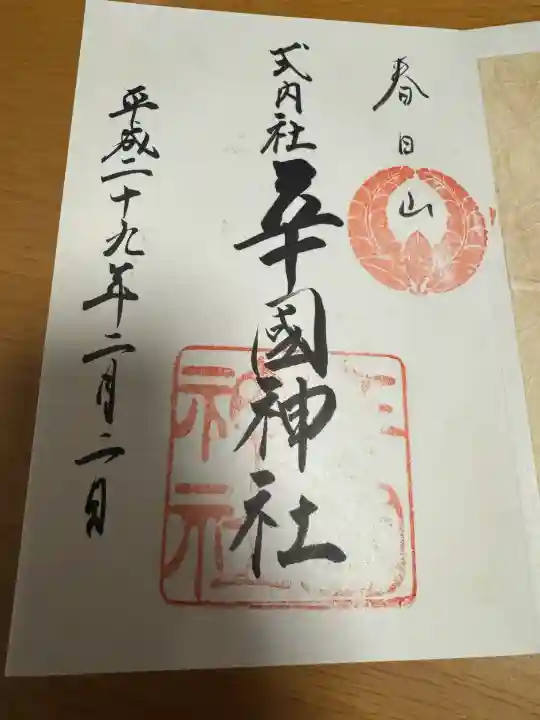 春日山
式内社
辛國神社
平成二十九年二月二日